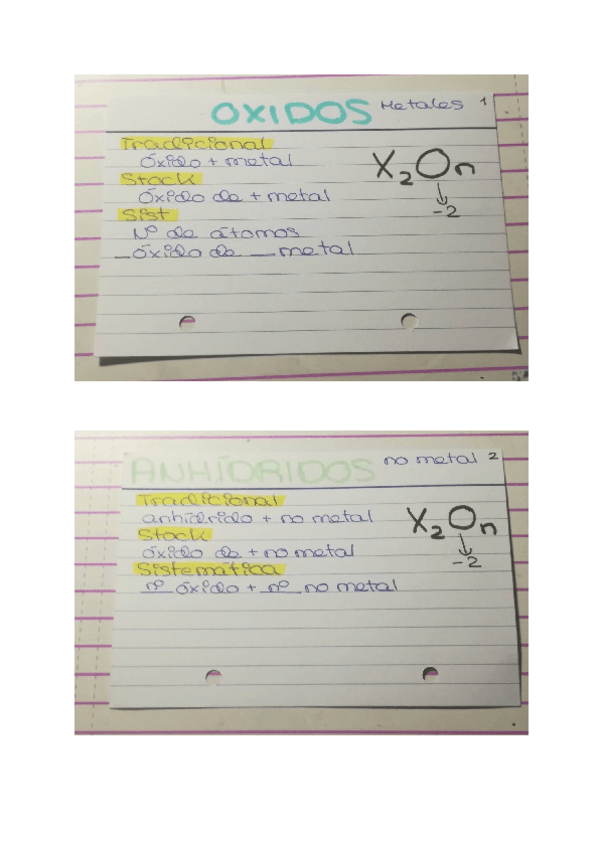 OXIDOS Metales 1
Tradicional
óxido + metal
X2On
Stock
óxido de + metal
-2
Sist
Nº de átomos
_óxido de __ metal
ANHÍDRIDOS no metal 2
Tradicional
anhídrido + no metal
X2On
Stock
óxido de + no metal
-2
Sistemática
nº óxido + nº no metal